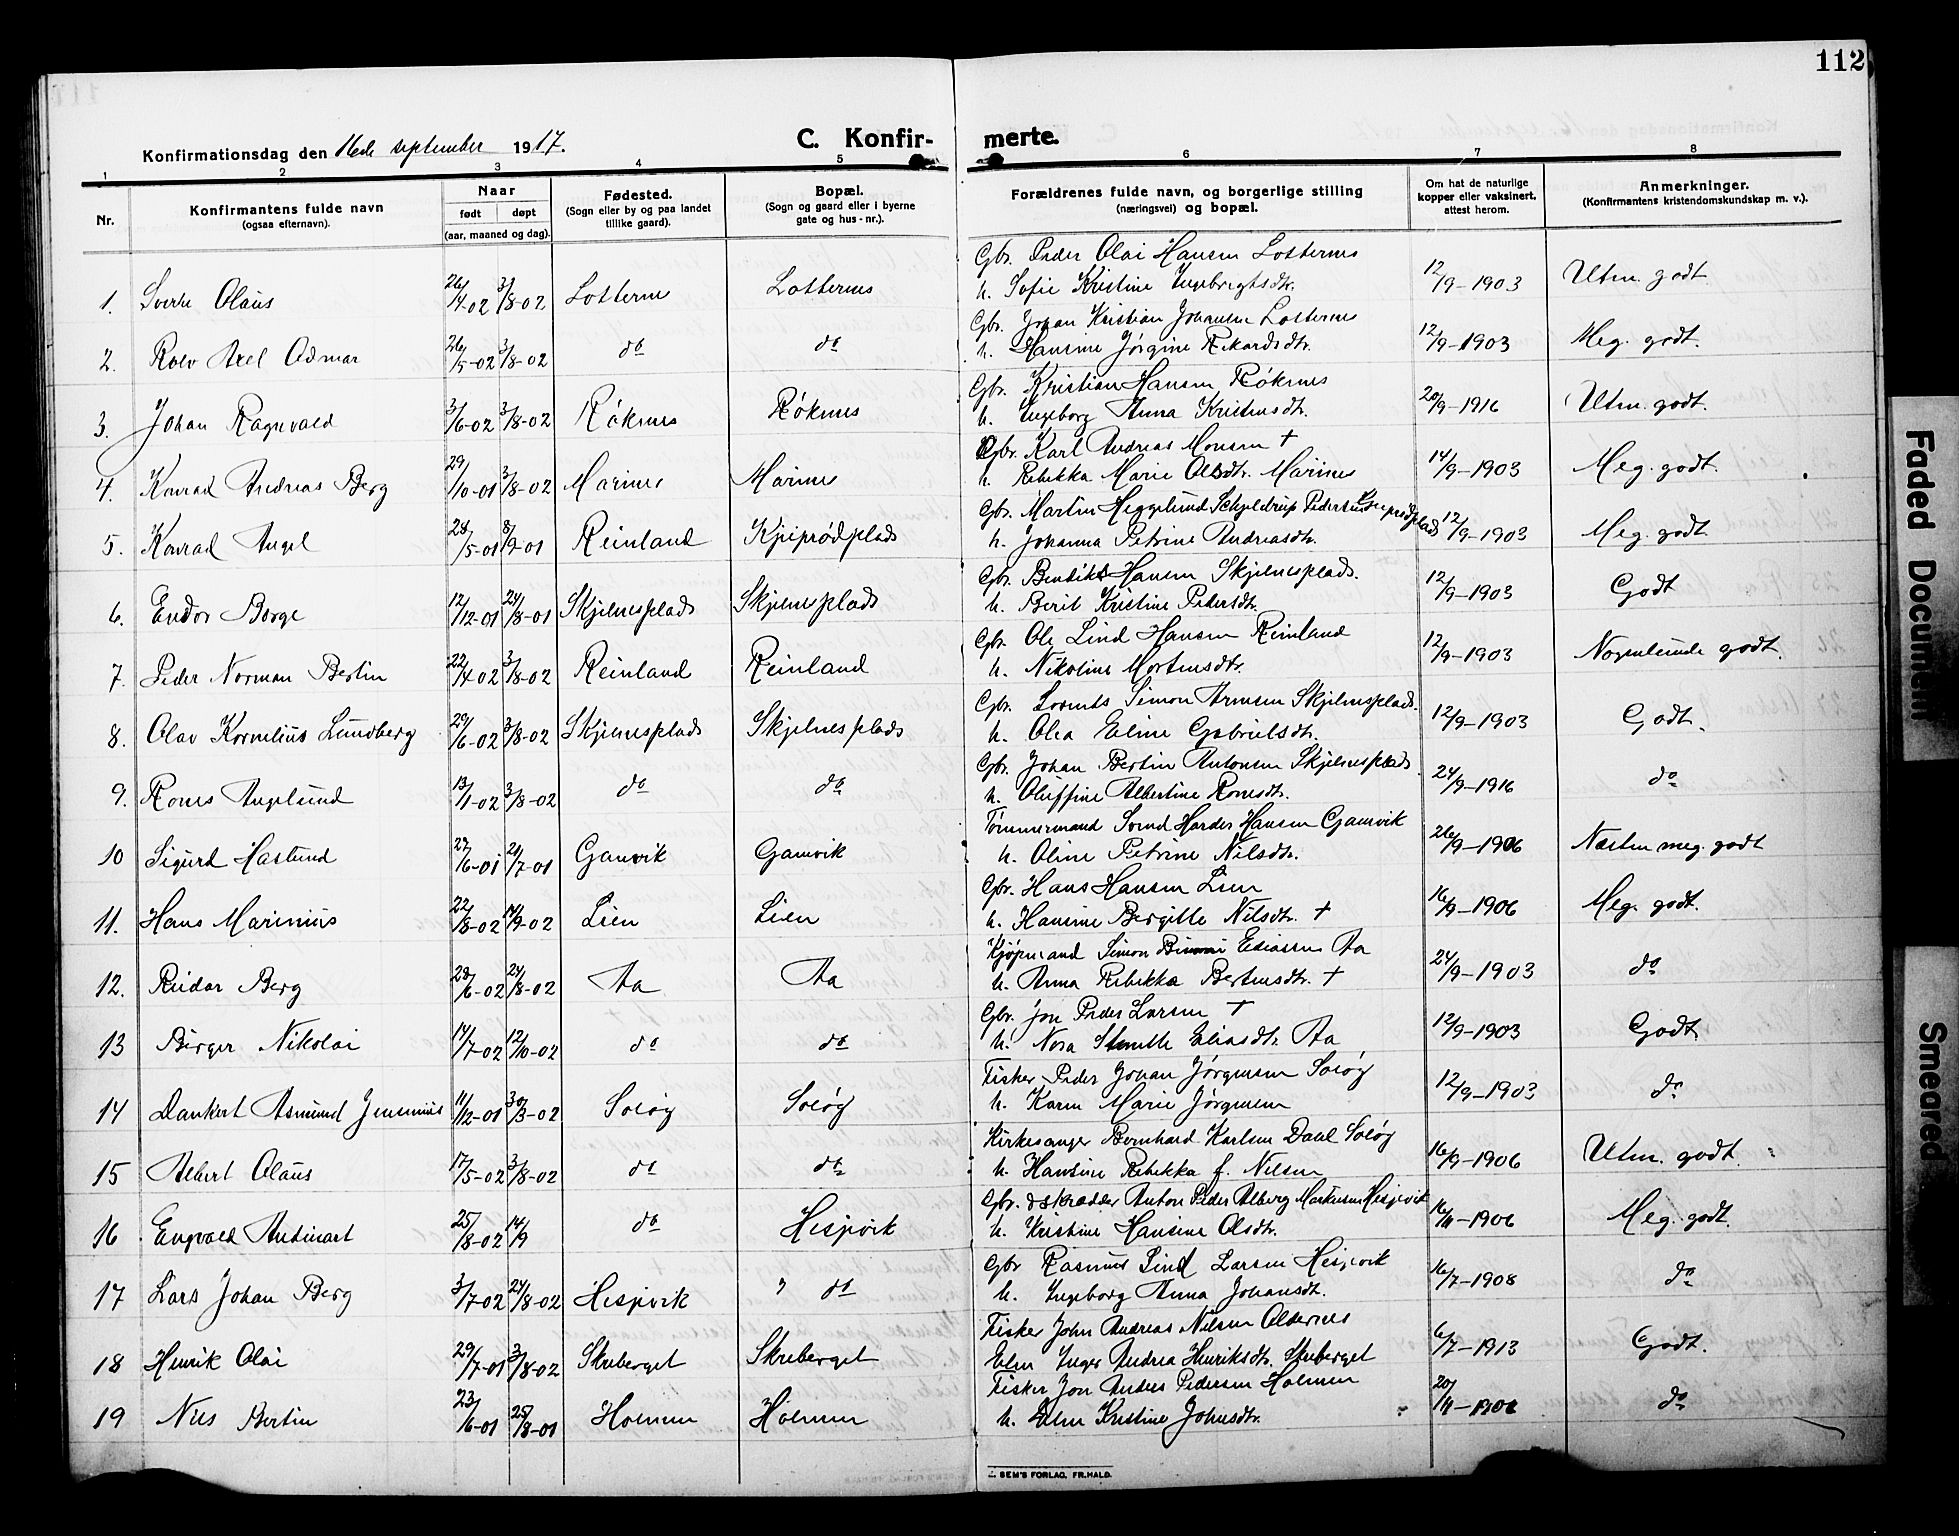 112
Konfirmationsdag den 16de september 1917.
C. Konfir-
merte.
1 2 3 4 5 6 7 8
Nr.
Konfirmantens fulde navn
(ogsaa efternavn).
Naar
født døpt
(aar, maaned og dag).
Fødested.
(Sogn eller by og paa landet
tillike gaard).
Bopæl.
(Sogn og gaard eller i byerne
gate og hus - nr.).
Forældrenes fulde navn, og borgerlige stilling
(næringsvei) og bopæl.
Om hat de naturlige
kopper eller vaksinert,
attest herom.
Anmerkninger.
(Konfirmantens kristendomskundskap m. v.).
Gbr. Peder Olai Hansen Lotternes
1. Sverre Olaus 26/4-02 3/8-02 Lotternes Lotternes h. Sofie Kristine Ingebrigtsdtr. 12/9-1903 Utm. godt
Gbr. Johan Kristian Johansen Lotternes
2. Rolv Axel Odmar 26/5-02 3/8-02 do do h. Hansine Jørgine Rikardsdtr. 12/9-1903 Meg. godt.
Gbr. Kristian Hansen Røknes
3. Johan Ragnvald 3/6-02 3/8-02 Røknes Røknes h. Ingeborg Anna Kristensdtr. 20/9-1916 Utm. godt.
Gbr. Karl Andreas Monsen †
4. Konrad Andreas Berg 29/10-01 3/8-02 Marines Marines h. Rebekka Marie Olsdtr. Marines 14/9-1903 Meg. godt.
Gbr. Martin Heggelund Schjeldrup Pedersen
5. Konrad Angel 28/5-01 8/9-01 Reinland h. Johanna Petrine Andreasdtr. 12/9-1903 Meg. godt.
Gbr. Bendikt Hansen Skjelnesplads.
6. Endor Borge 12/12-01 Skjelnesplads Skjelnesplads h. Berit Kristine Pedersdtr. 12/9-1903 Godt
Gbr. Ole Lind Hansen Reinland
7. Peder Norman Bertin 22/4-02 3/8-02 Reinland Reinland h. Nikoline Mortensdtr. 12/9-1903 Nogenlunde godt.
Gbr. Lorents Simon Arnesen Skjelnesplads.
8. Olav Kornelius Lundberg 29/6-02 3/8-02 Skjelnesplads Skjelnesplads h. Olea Eline Gabrielsdtr. 12/9-1903 Godt.
Gbr. Johan Bertin Antonsen Skjelnesplads
9. Angelund 13/1-02 3/8-02 do do h. Oluffine Albertine 24/9-1916 do
Tømmermand Hansen Gamvik
10 Sigurd Haslund 27/6-01 21/7-01 Gamvik Gamvik h. Oline Petrine Nilsdtr. 26/9-1906 Næsten meg. godt
Gbr. Hans Hansen Lien
11. Hans Marinius 22/8-02 14/9-02 Lien Lien h. Hansine Bergitte Nilsdtr. † 16/9-1906 Meg. godt.
Kjøpmand Simon Eliassen Aa
12. Reidar Berg 28/6-02 24/8-02 Aa Aa h. Anna Rebekka Bertinsdtr. † 24/9-1903 do
Gbr. Jon Peder Larsen †
13 Birger Nikolai 14/7-02 12/10-02 do do h. Nora Eliasdtr. Aa 12/9-1903 Godt
Fisker Peder Johan Jørgensen Soløy
14 Dankert Asmund Jensenius 11/12-01 30/3-02 Soløy Soløy h. Karen Marie Jørgensen 12/9-1903 do
Kirkesanger Bernhard Karlsen Dahl Soløy
15 Albert Olaus 17/5-02 3/8-02 do do h. Hansine Rebekka f. Nilsen 16/9-1906 Utm. godt.
Gbr. & skrædder Anton Peder Alberg Markussen Hesjevik
16 Engvald Antinart 25/8-02 14/9 do Hesjevik h. Kristine Hansine Olsdtr. 16/11-1906 Meg. godt.
Gbr Rasmus Lind Larsen Hesjevik
17 Lars Johan Berg 3/7-02 24/8-02 Hesjevik " do h. Ingeborg Anna Johansdtr. 16/7-1908 do
Fisker John Andreas Nilsen Oldernes
18 Henrik Olai 29/7-01 3/8-02 Skreberget Skreberget Elen Inger Andrea Henriksdtr. Skreberget 6/7-1913 Godt.
Fisker Jon Anders Pedersen Holmen
19 Nils Bertin 23/6-01 25/8-01 Holmen Holmen h. Elen Kristine Johnsdtr. do
SEM'S FORLAG, FR.HALD.
Faded Document
Smeared